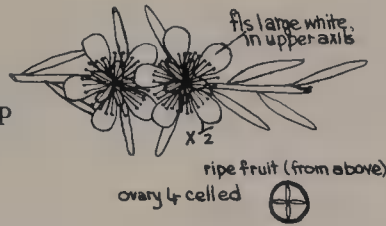 fls large white,
in upper axils
p
x ½
ripe fruit (from above)
ovary 4 celled